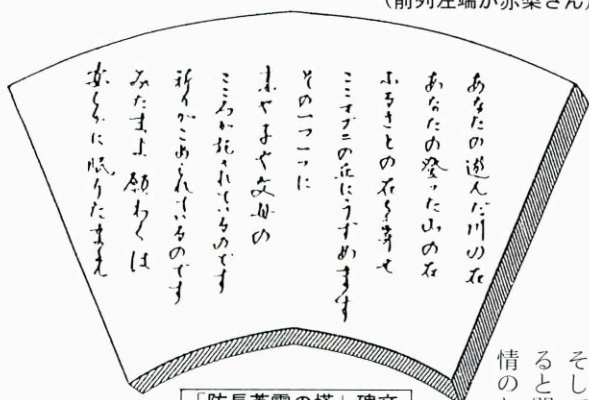 (前列左端が赤桑さん)
あなたの遊んだ川の石
あなたの登った山の石
ふるさとの石を寄せ
ここマブニの丘にうずめます
その一つ一つに
妻や子や父母の
こころが記されているのです
祈りがこめられているのです
みたまよ 願わくは
安らかに眠りたまえ
「防長英霊の塔」碑文
そして
ると
情の